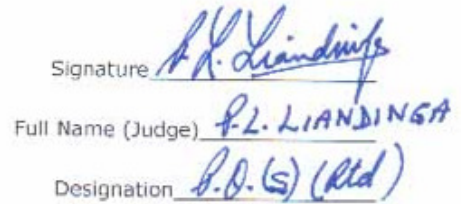 Signature P. L. Liandinga
Full Name (Judge) P.L. LIANDINGA
Designation P.O.(S) (Rtd)